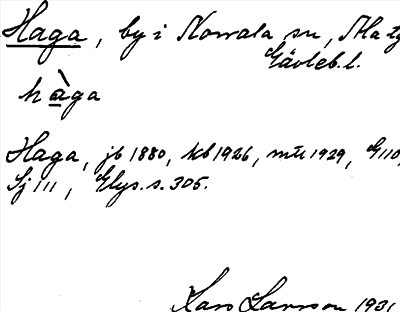 Haga, by i Norrala sn,
Gävleb. l.
hàga
Haga, jb 1880, kb 1926, mtl 1929, G110,
Sj 111, Glys. s. 305.
Lars Larsson 1931